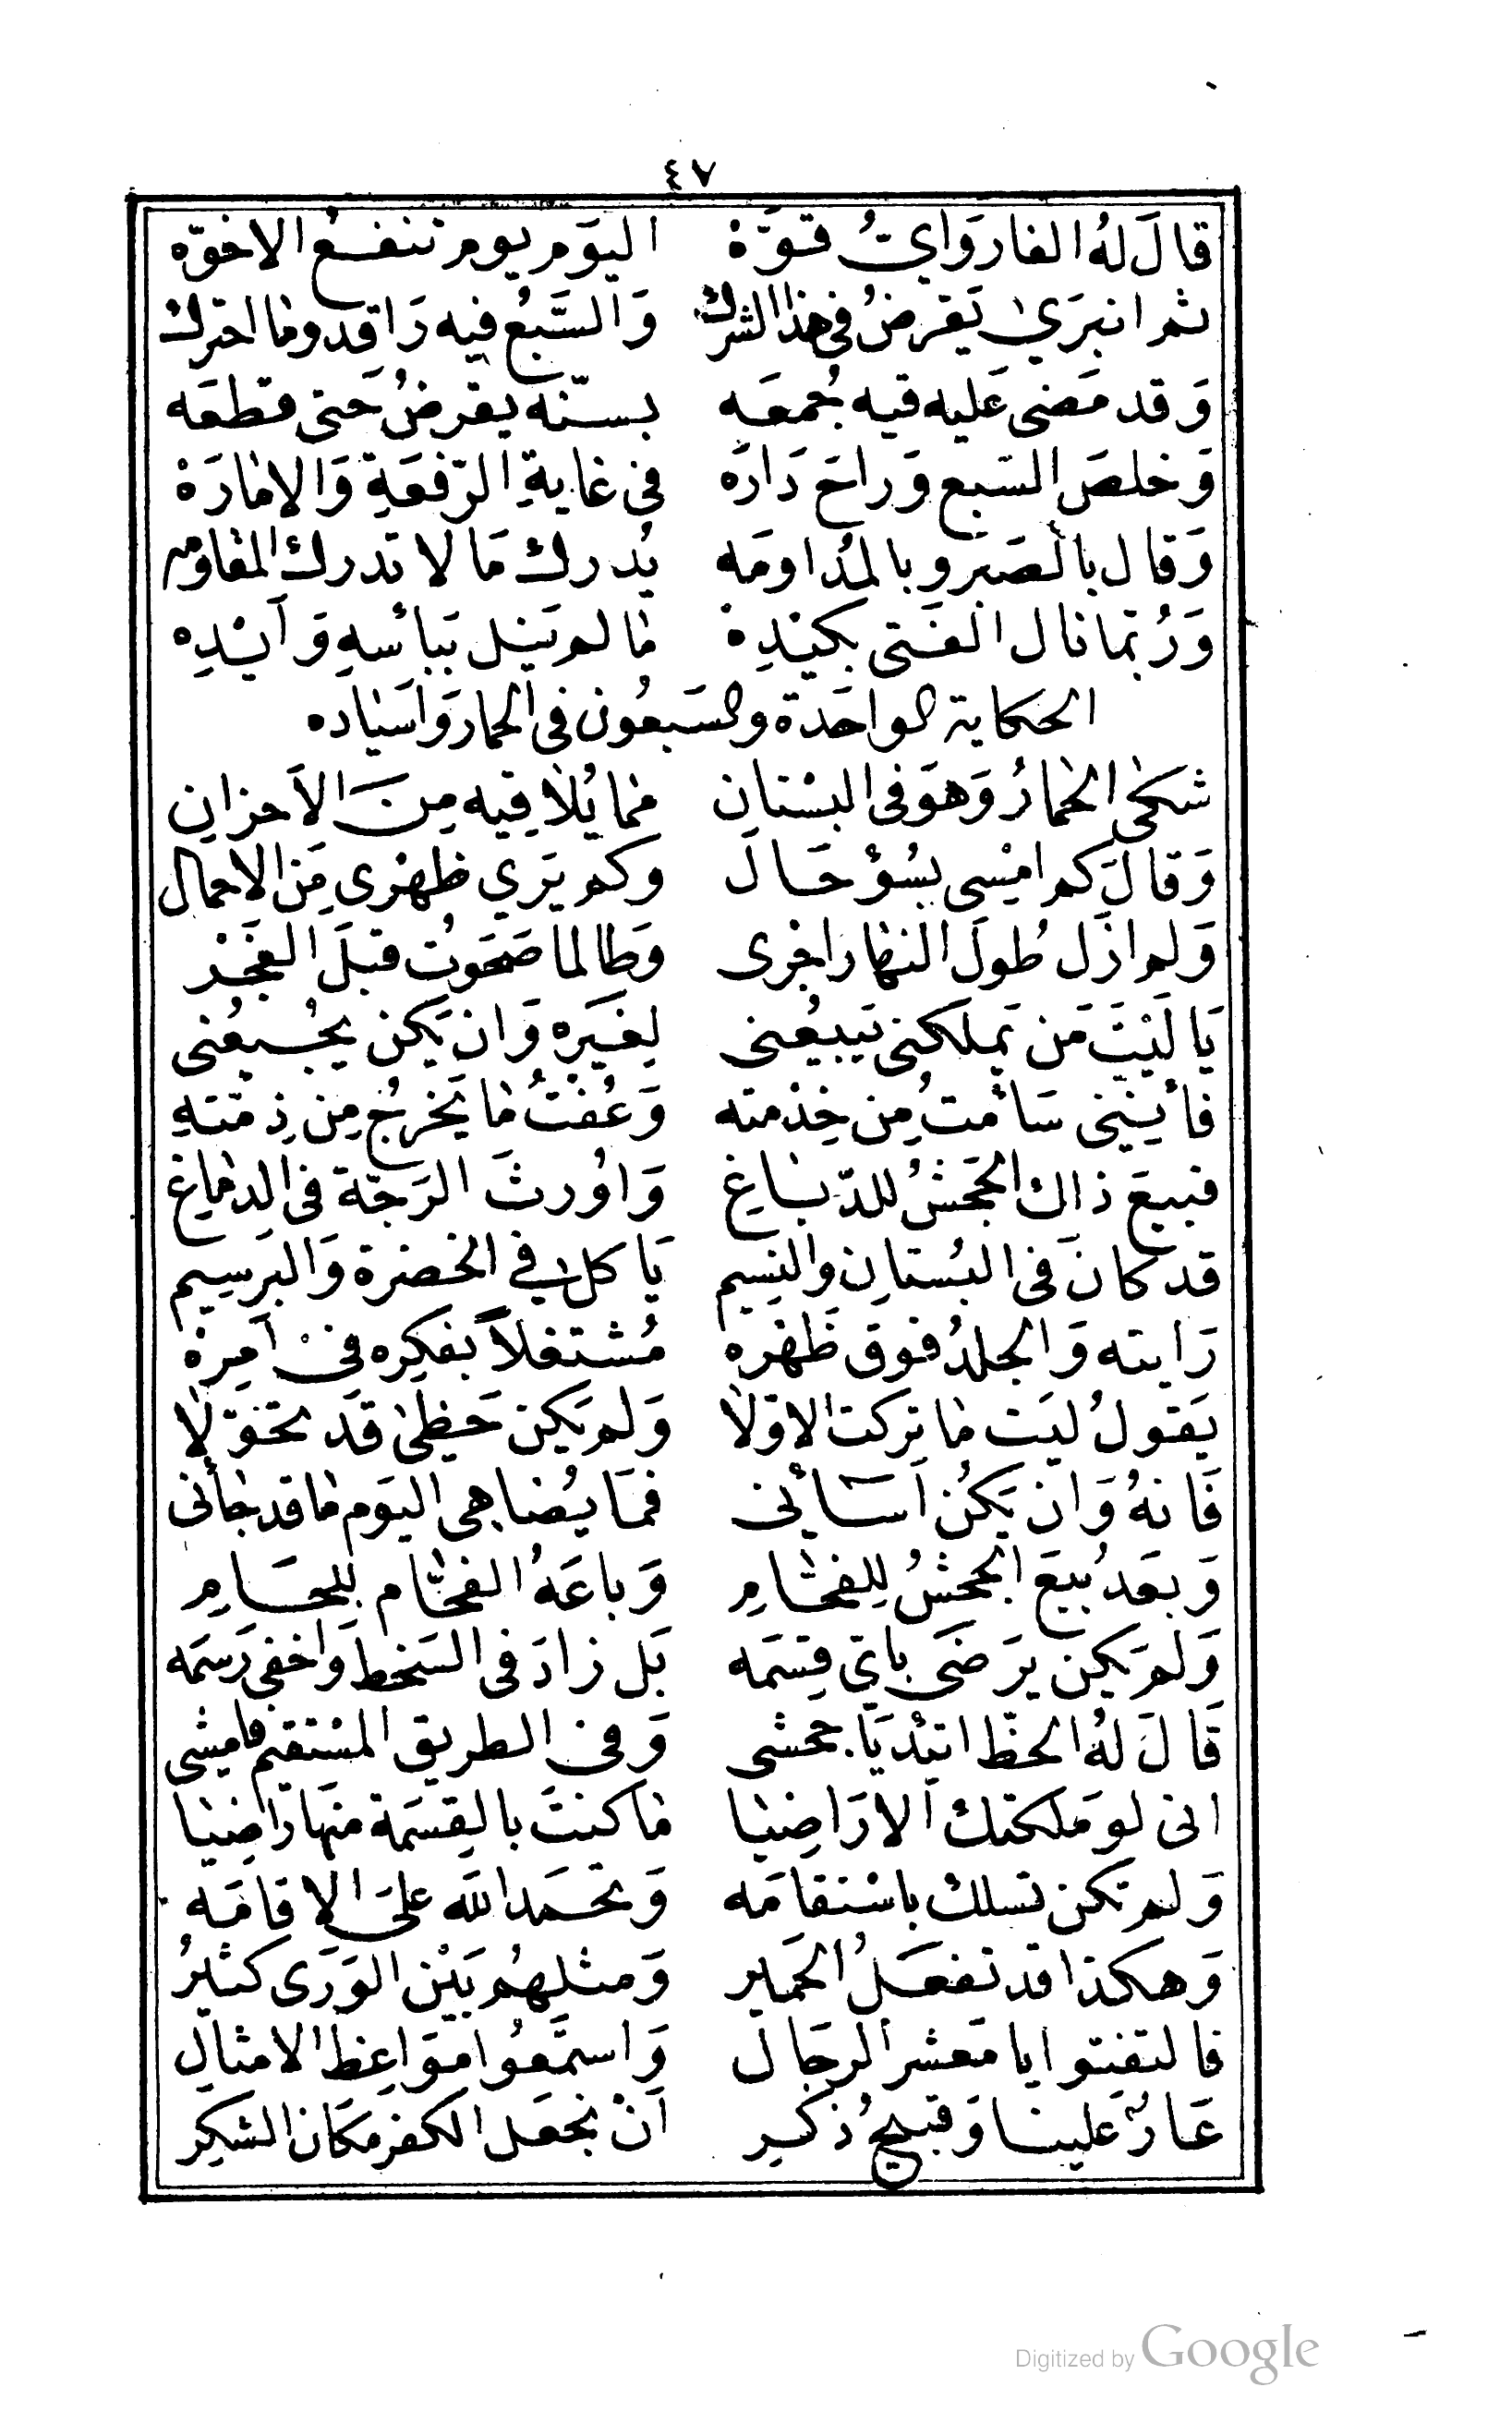 ٤٧
قالَ لهُ الفار وَايُ قوَّة اليوَم يوم تنفعُ الاخوّه
ثم انبرَى يَقرضُ فى هذا الشرك وَالسَّبُع فيه رَاقد وما احترك
وَقد مَضى عَليه فيه جُمعَه بسنّه يقرضُ حَتى قطعَه
وَخلصَ السَبع وَراحَ دَارَه فى غايةِ الرّفعَةِ وَالامارَة
وَقال بالصَبر وبالمُداومَه يُدرك مَا لا تدرك المقاومه
وَرُبّما نال الفَتى بكيْدِه ما لم يَنِل بَبأسهِ وَأيْدِه
الحكاية الواحَدة والسَبعُون فى الحمار وَاسياده
شكى الحمارُ وَهوَ فى البسْتانِ مما يُلاقِيه مِنَ الاَحزانِ
وَقالَ كم امْسِى بسُؤ حَالَ وكم يَرَي ظهْرى مِن الاحمال
وَلم ازَل طُولَ النهار اجْرى وَطالما صَحَوتُ قبلَ الفَجْر
يَا لَيْتَ مَن يَملكنى يَبيعُنى لِغيَره وَان يَكن يجُيعُنى
فأيننى سَامتُ مِن خِذْمته وَعُفْتُ ما يَخرجُ مِن ذِمّتهِ
فبيعَ ذاك الجَحشُ للدّباغِ وَاوُرثَ الرَجّة فى الدماغِ
قد كانَ فى البُستانِ والنسِيم يَاكل فى الخضرة وَالبَرسِيم
رَايته وَالجلدُ فوق ظَهْره مُشتغلاً بفكِره فىْ امِرهْ
يَقولُ ليَت ما تركت الاوّلا وَلم يَكن حَظىٰ قَد تحَوّلا
فَانهُ وَان يَكُن اَسَأنى فمَا يُضاهى اليَوم ما قد جأنى
وَبعَد بُيعَ الجحشُ لِلفحّامِ وَباعَهُ الفحّام لِلحمَامِ
وَلم يَكن يرَضىَ باىّ قِسمَه بَل زادَ فى السَخط وَاخفى رَسمَه
قَالَ لهُ الحظّ اتئدْ يَا جحشى وَفى الطريق المسْتقيم فامشى
انى لو مَلكتك الارَاضِيا ما كنتَ بالقِسمَة مِنها رَاضِيا
وَلم تكن تسلك باسْتقامَه وَتحمَد اللّه علىَ الاقامَه
وَهكذا قد تفعَلُ الحَمير وَمثلهُم بَيْن الوَرَى كثيرُ
فالتفتوا يا مَعشر الرجَال وَاستمَعُوا مَواعِظ الامثالِ
عَارٌ علينا وَقبيحُ ذكرِ اَنْ نجعَل الكفر مكَان الشكِر
Digitized by Google